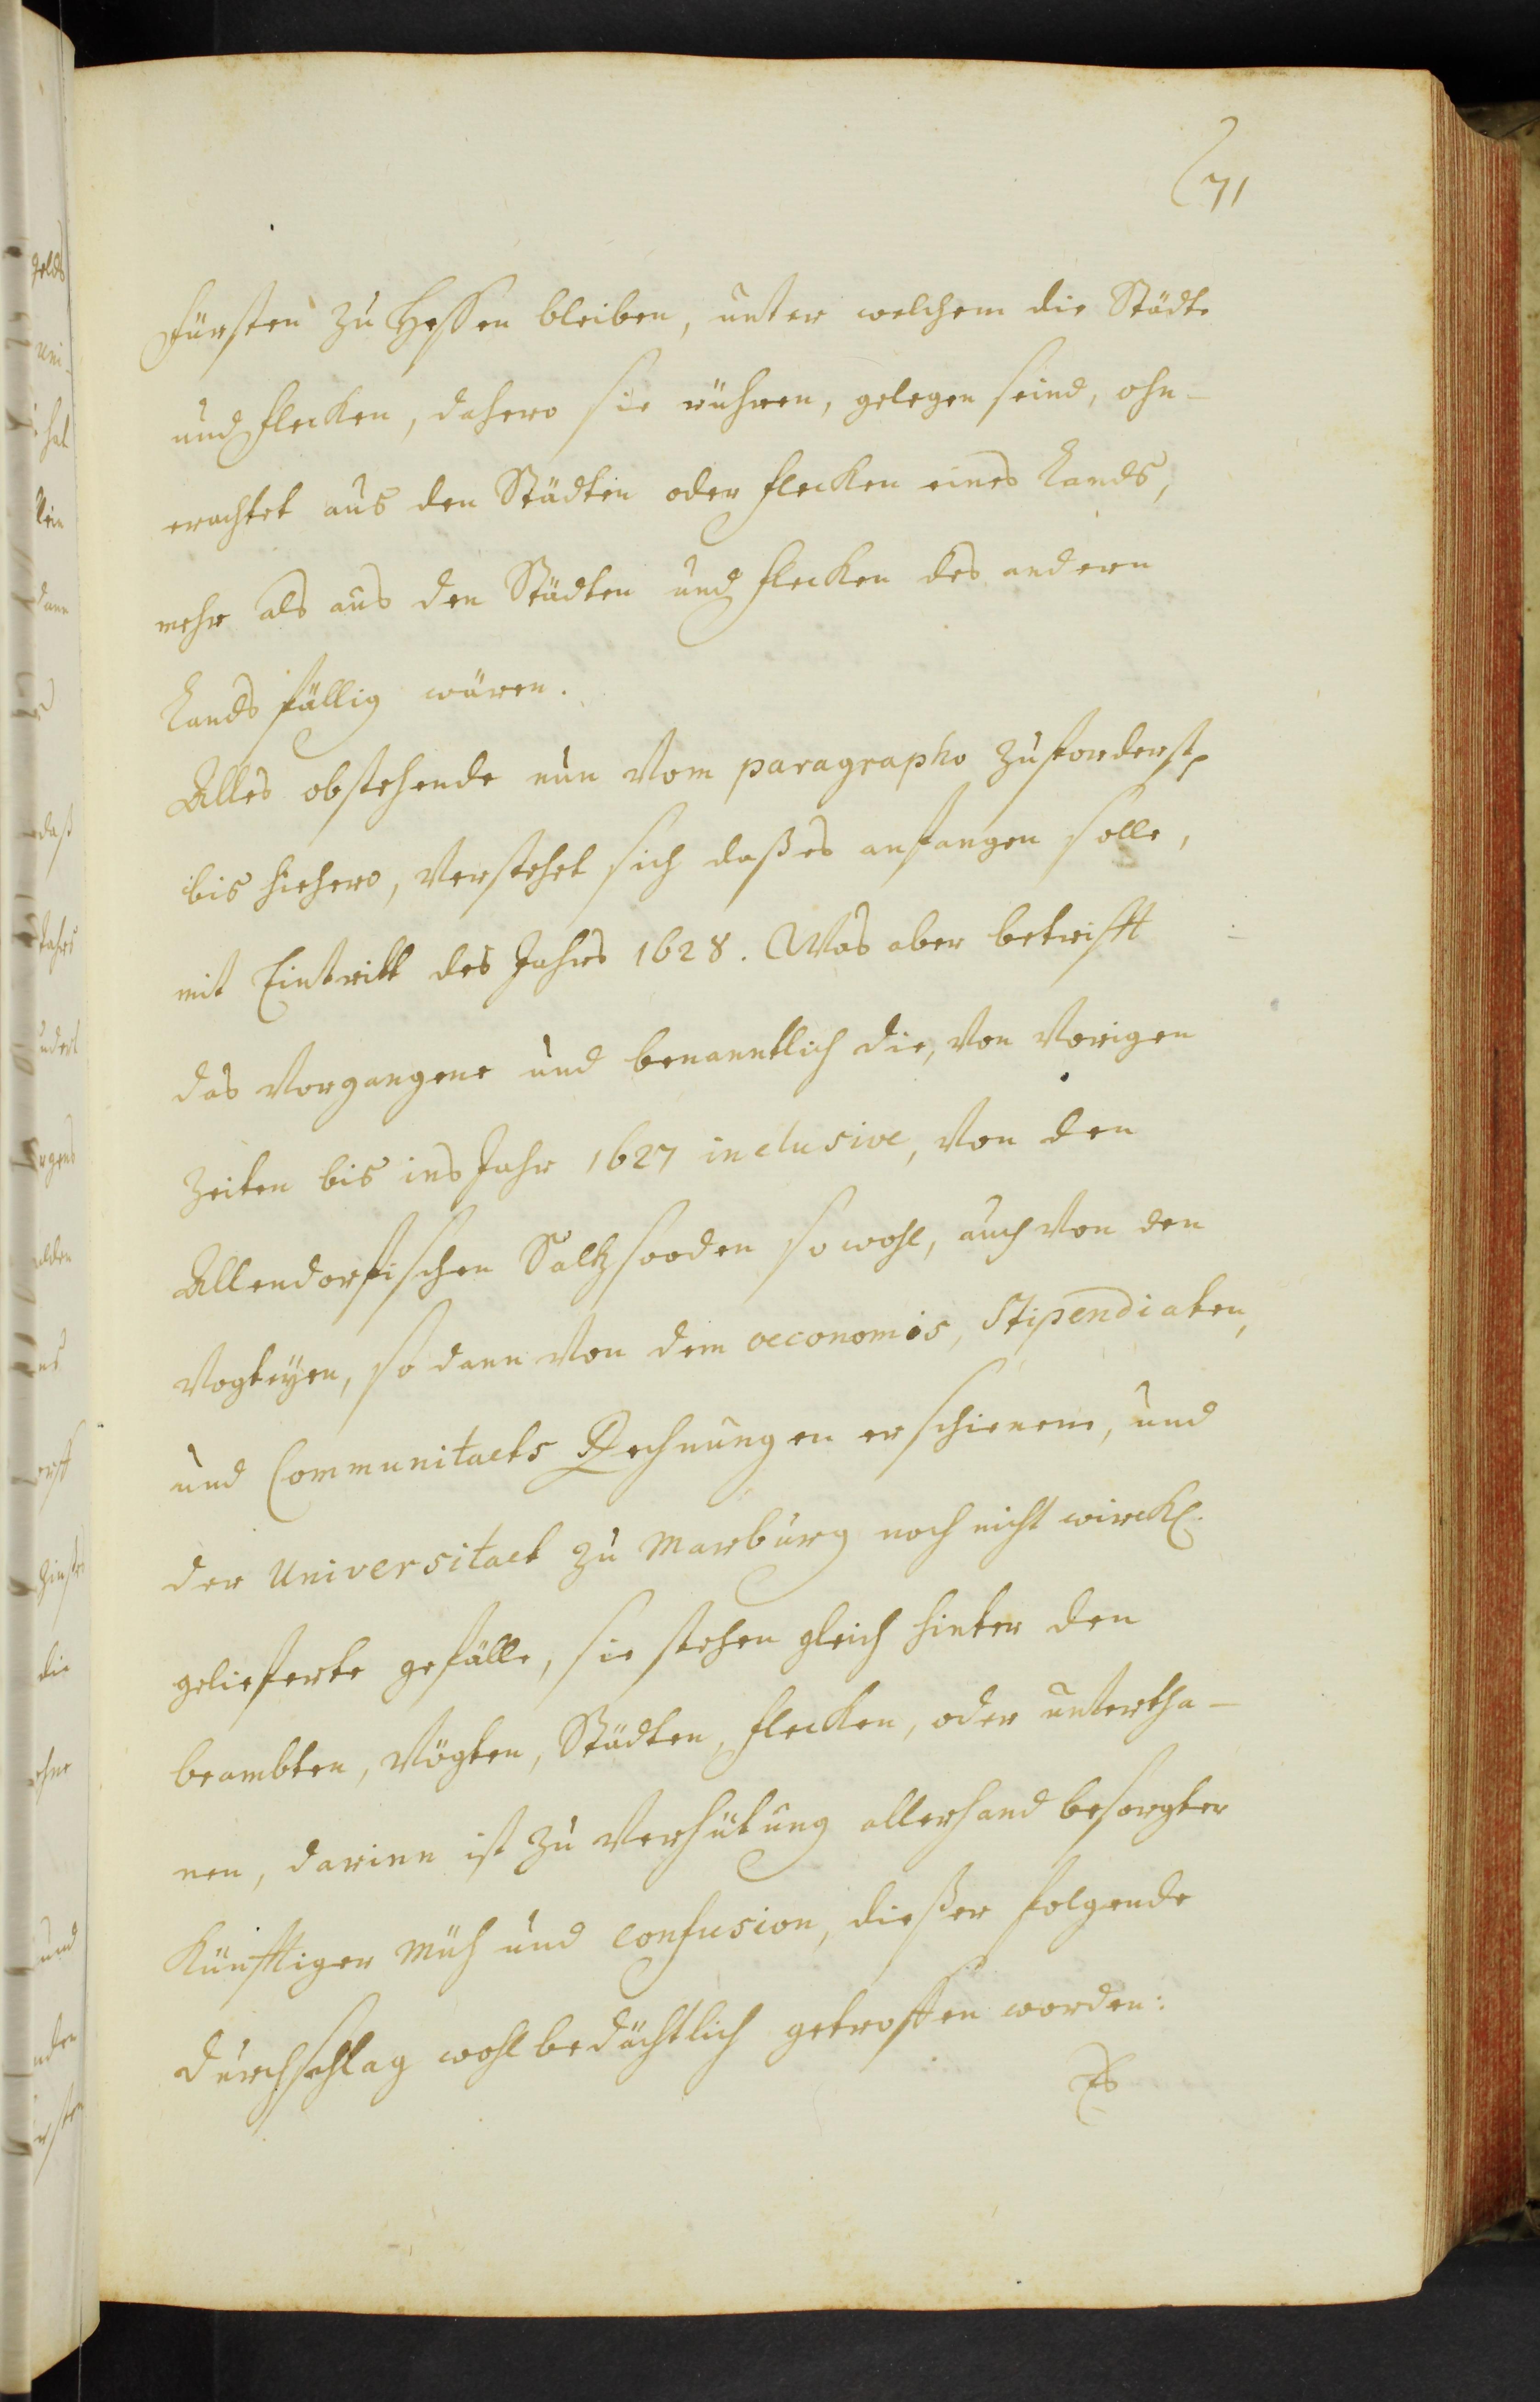 71
Fürsten zu Hessen bleiben, unter welchem die Städte
und Flecken, dahero sie rühren, gelegen seind, ohn-
erachtet aus den Städten oder Flecken eines Lands,
mehr als aus den Städten und Flecken des andern
Lands fällig wären.
Alles obstehende nun vom paragrapho zuforderst
bis hiehero, verstehet sich daß es anfangen solle,
mit Eintritt des Jahrs 1628. Was aber betrifft
das vorgangene und benanntlich die, von vorigen
Zeiten bis ins Jahr 1627 inclusive, von den
Allendorfischen Saltzsooden so wohl, auch von den
Vogteyen, so dann von dem oeconomis, Stipendiaten,
und Communitaets Rechnungen erschienene, und
der Universitaet zu Marburg noch nicht wirckl.
gelieferte gefälle, sie stehen gleich hinter den
beambten, Vögten, Städten, Flecken, oder untertha-
nen, darinn ist zu Verhütung allerhand besorgter
Künfftiger Müh und confusion, dießer folgende
durchschlag wohlbedächtlich getroffen worden:
Es
gelds
uni-
hat
dann
daß
Jahrs
orff
die
ohne
und